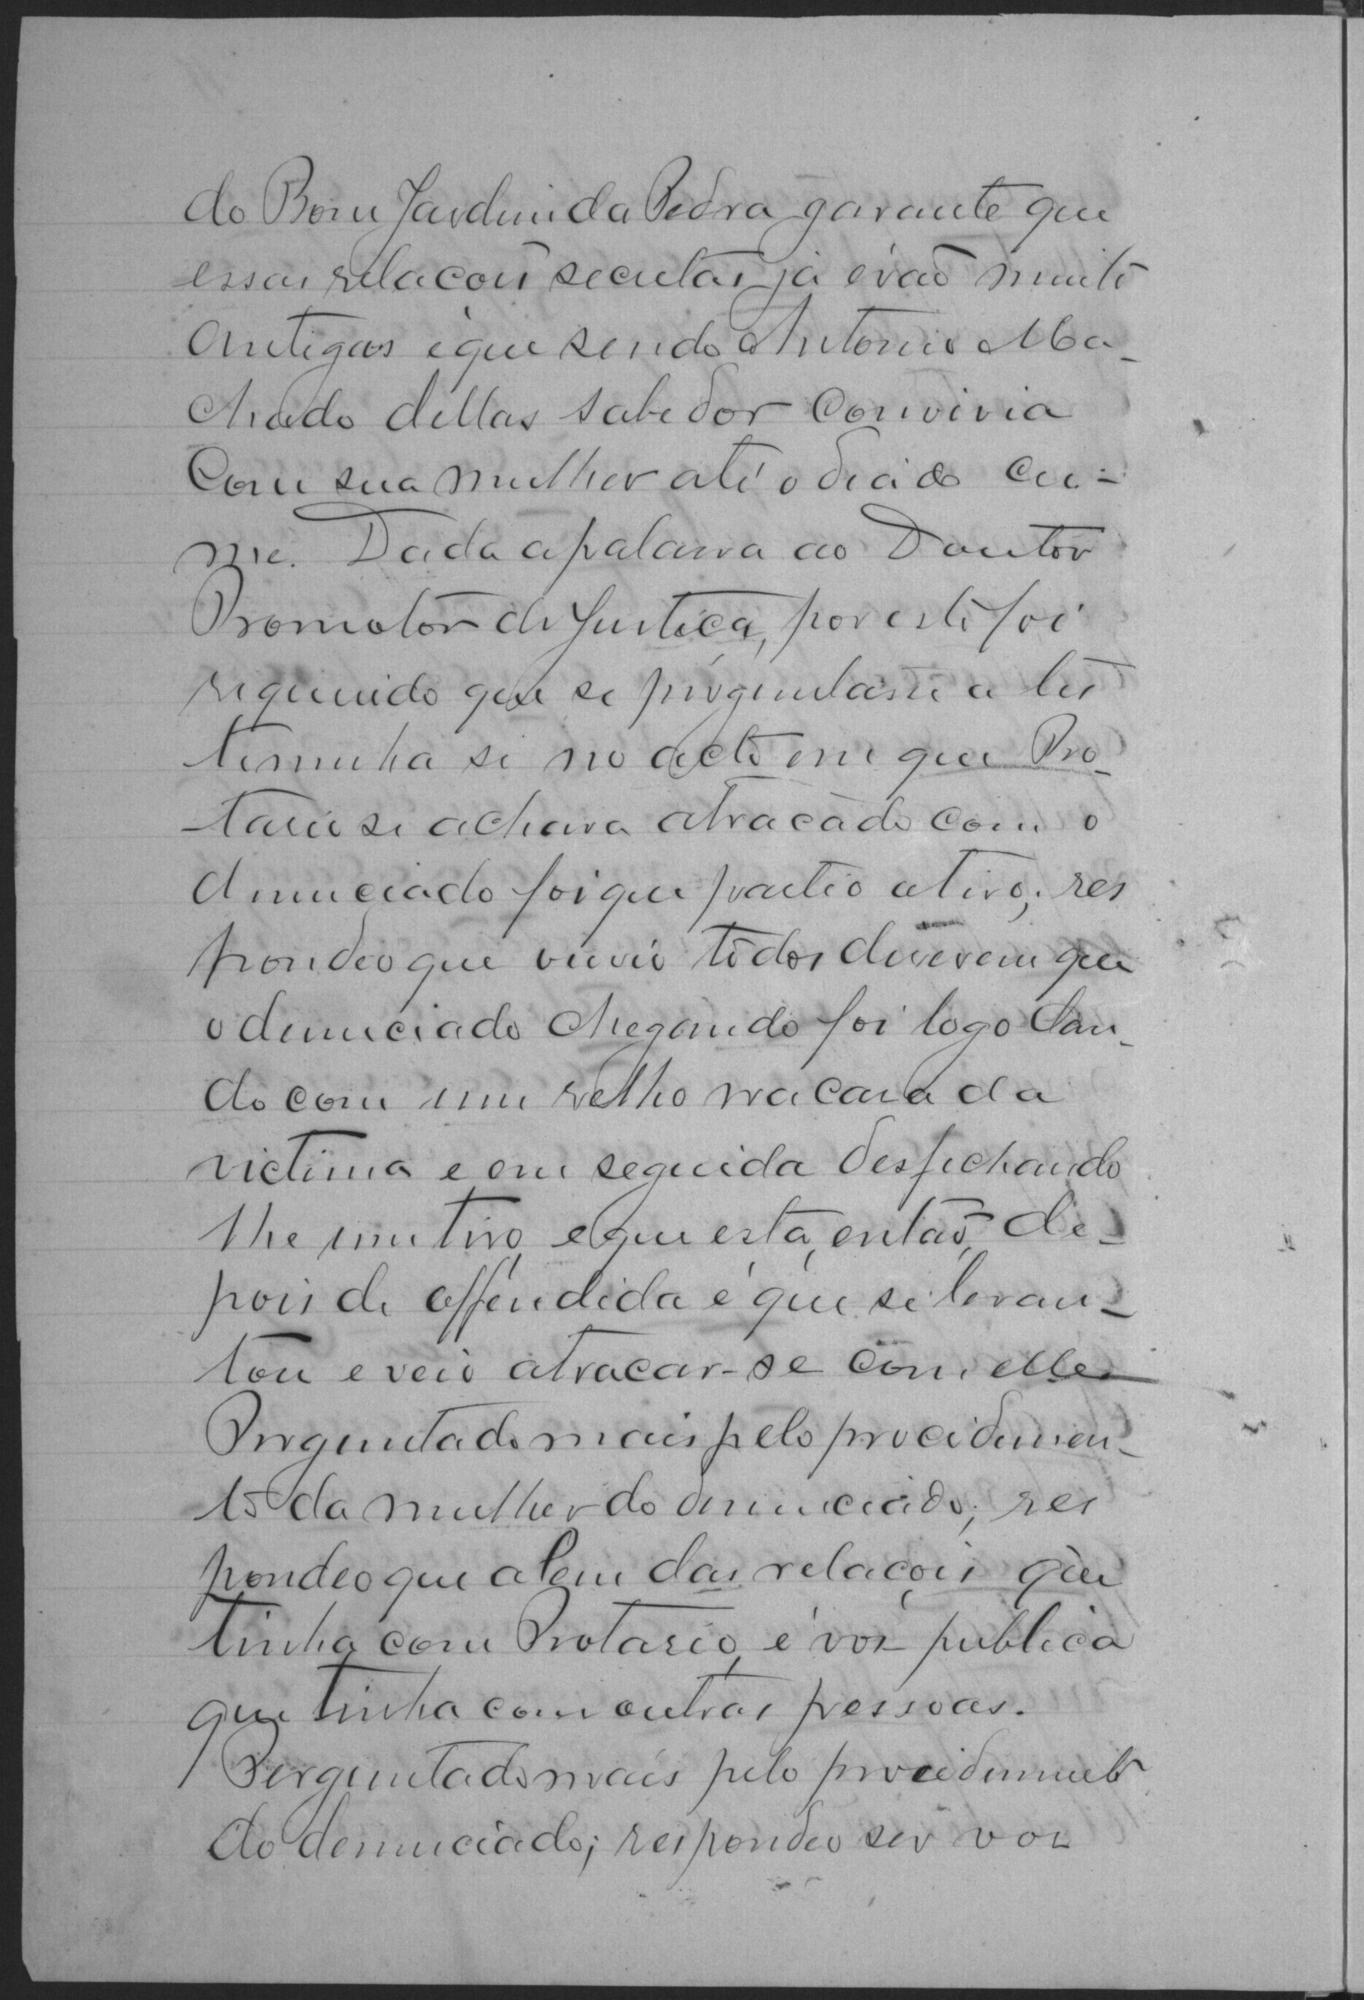 do Bom Jardim da Pedra garante que
essas relacoes secretas já erão muito
antigas e que sendo Antonio Ma-
chado dellas sabedor convivia
com sua mulher até o dia do cri-
me. Dada a palavra ao Doutor
Promotor de Justiça, por este foi
requerido que se perguntasse a tes
temunha si no acto em que Pro-
tasio se achava atracado com o
denunciado foi que partio o tiro; res
pondeo que ouvio todos dizerem que
o denunciado chegando foi logo dan-
do com um relho na cara da
victima e em seguida desfechando
lhe um tiro, e que esta, então, de-
pois de offendida é que se levan-
tou e veio atracar-se com elle.
Perguntado mais pelo procedimen-
to da mulher do denunciado; res
pondeo que alem das relações que
tinha com Protasio, é voz publica
que tinha com outras pessoas.
Perguntado mais pelo procedimento
do denunciado; respondeo ser voz